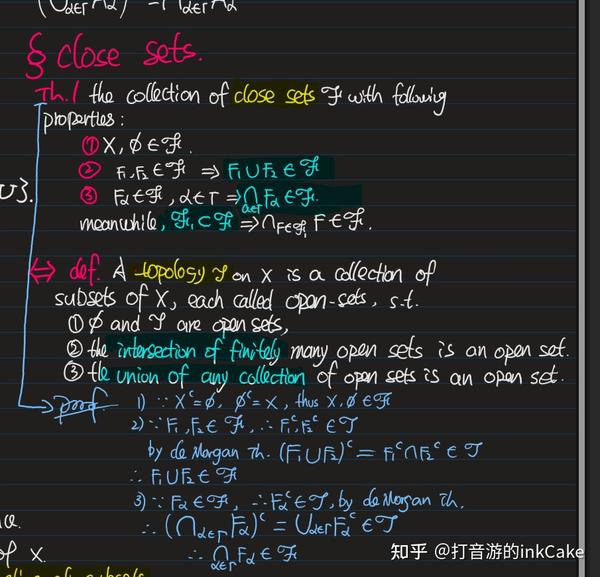 (∪α∈Γ Aα)ᶜ = ∩α∈Γ Aαᶜ
§ close sets.
Th.1 the collection of close sets ℱ with following
properties:
① X, ∅ ∈ ℱ.
② F₁, F₂ ∈ ℱ ⇒ F₁ ∪ F₂ ∈ ℱ
③ Fα ∈ ℱ, α ∈ Γ ⇒ ∩α∈Γ Fα ∈ ℱ.
meanwhile, ℱ₁ ⊂ ℱ ⇒ ∩F∈ℱ₁ F ∈ ℱ.
⇔ def. A topology 𝒯 on X is a collection of
subsets of X, each called open-sets, s.t.
① ∅ and 𝒯 are open sets,
② the intersection of finitely many open sets is an open set.
③ the union of any collection of open sets is an open set.
proof. 1) ∵ Xᶜ = ∅, ∅ᶜ = X, thus X, ∅ ∈ ℱ
2) ∵ F₁, F₂ ∈ ℱ, ∴ F₁ᶜ, F₂ᶜ ∈ 𝒯
by de Morgan Th. (F₁ ∪ F₂)ᶜ = F₁ᶜ ∩ F₂ᶜ ∈ 𝒯
∴ F₁ ∪ F₂ ∈ ℱ
3) ∵ Fα ∈ ℱ, ∴ Fαᶜ ∈ 𝒯, by de Morgan Th.
∴ (∩α∈Γ Fα)ᶜ = ∪α∈Γ Fαᶜ ∈ 𝒯
of X.
∴ ∩α∈Γ Fα ∈ ℱ
知乎 @打音游的inkCake